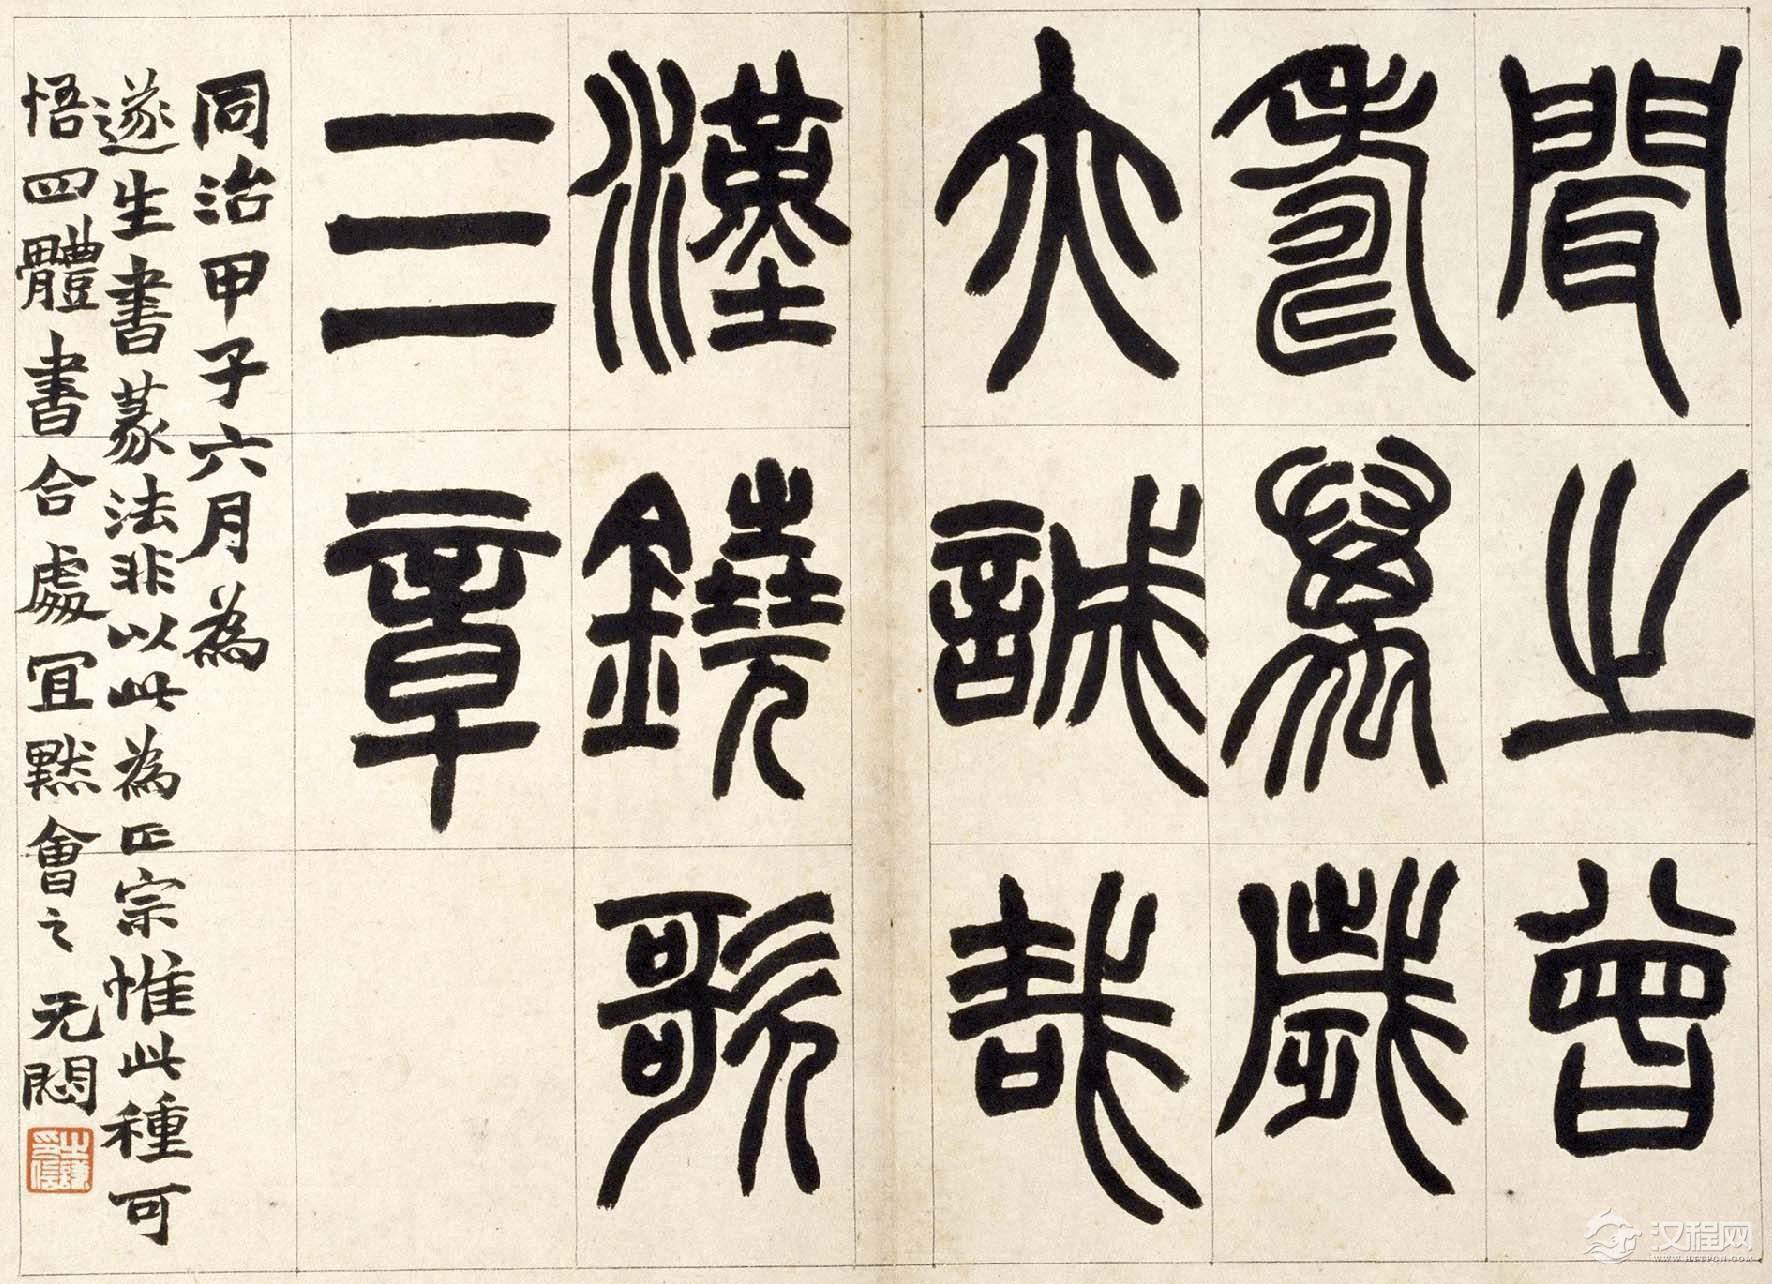 聞之曾
壽萬歲
亦誠哉
漢鐃歌
三章
同治甲子六月為
遂生書篆法非以此為正宗惟此種可
悟四體書合處宜默會之 无悶
之謙印信
汉程网
WWW.HTTPCN.COM